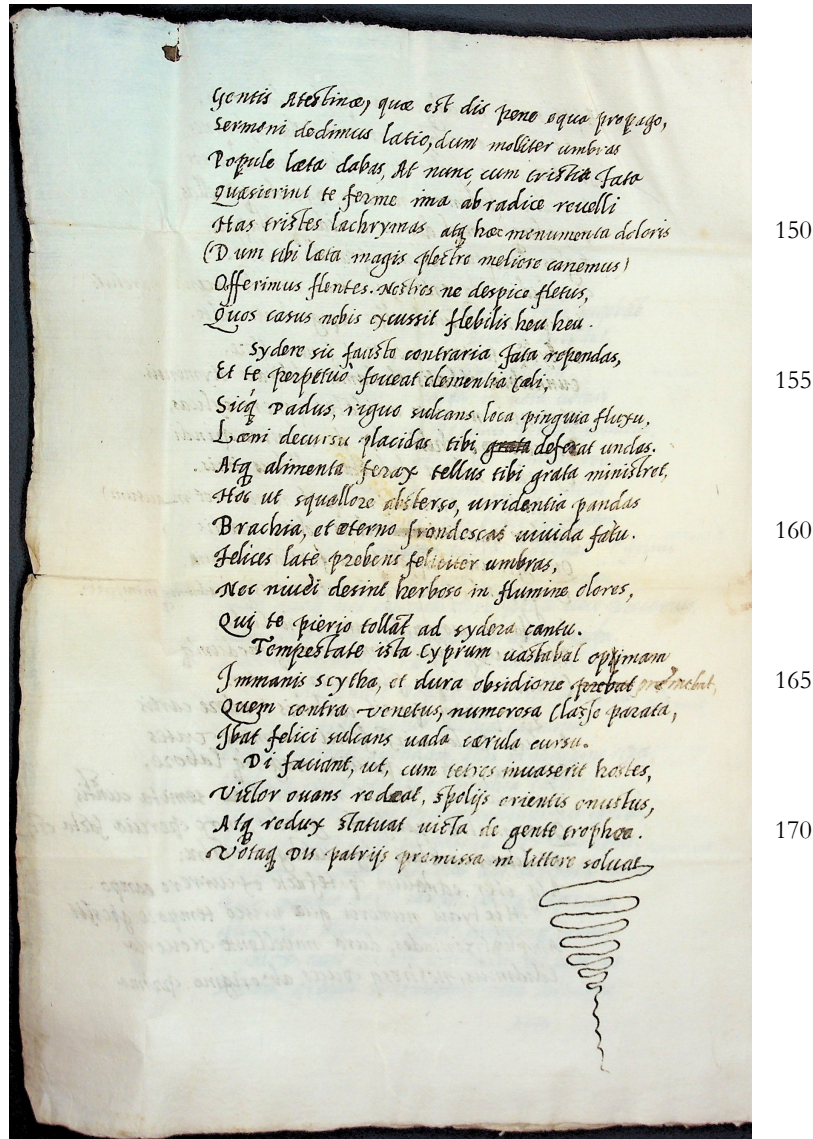 Gentis Atestinæ, quæ est dis pene equa propago,
Sermoni dedimus latio, dum molliter umbras
Popule læta dabas, At nunc cum tristia fata
Quæsierint te ferme ima ab radice revelli
Has tristes lachrymas atq hæc monumenta doloris
150
(Dum tibi læta magis plectro meliore canemus)
Offerimus flentes. Nostros ne despice fletus,
Quos casus nobis excussit flebilis heu heu.
Sydere sic fausto contraria fata rependas,
Et te perpetuò foveat clementia cæli,
155
Sicq Padus, riguo sulcans loca pinguia fluxu,
Læni decursu placidas tibi grata deferat undas.
Atq alimenta ferax tellus tibi grata ministret,
Hoc ut squallore absterso, viridentia pandas
Brachia, et æterno frondescas vivida fatu.
160
Felices latè prebens feliciter umbras,
Nec nivei desint herboso in flumine olores,
Qui te pierio tollāt ad sydera cantu.
Tempestate ista Cyprum vastabat opimam
Immanis scytha, et dura obsidione prebat premebat,
165
Quem contra venetus, numerosa classe parata,
Ibat felici sulcans vada cærula cursu.
Di faciant, ut, cum tetros invaserit hostes,
Victor ovans redeat, spolijs orientis onustus,
Atq redux statuat victa de gente trophea.
170
Votaq Dis patrijs promissa in littore solvat